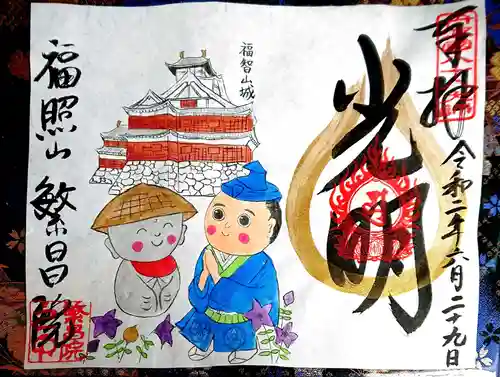 奉拝
令和二年六月二十九日
光明
福智山城
福照山 繁昌院